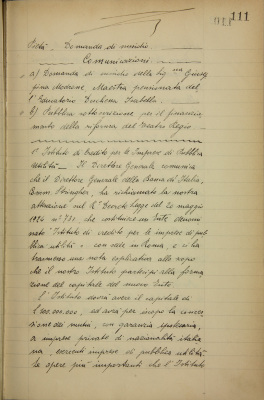 111
Posta. Domanda di sussidio
Comunicazioni
a) Domanda di sussidio della Sig.na Giusep
pina Modrone, Maestra pensionata del
l'Educatorio Duchessa Isabella.
b) Pubblica sottoscrizione per il finanzia
mento della riforma del Teatro Regio
Istituto di Credito per le Imprese di Pubblica
Utilità - Il Direttore Generale comunica
che il Direttore Generale della Banca d'Italia,
Comm. Stringher, ha richiamato la nostra
attenzione sul R. Decreto Legge del 20 maggio
1924 n° 731 che costituisce un Ente denomi
nato "Istituto di credito per le imprese di pub
blica utilità" con sede in Roma e ci ha
trasmesso una nota esplicativa allo scopo
che il nostro Istituto partecipi alla forma
zione del capitale del nuovo Ente.
L'Istituto dovrà avere il capitale di
L. 100.000.000, ed avrà per scopo la conces
sione dei mutui, con garanzia ipotecaria,
a imprese private di nazionalità italia
na, esercenti imprese di pubblica utilità.
Le opere più importanti che l'Istituto